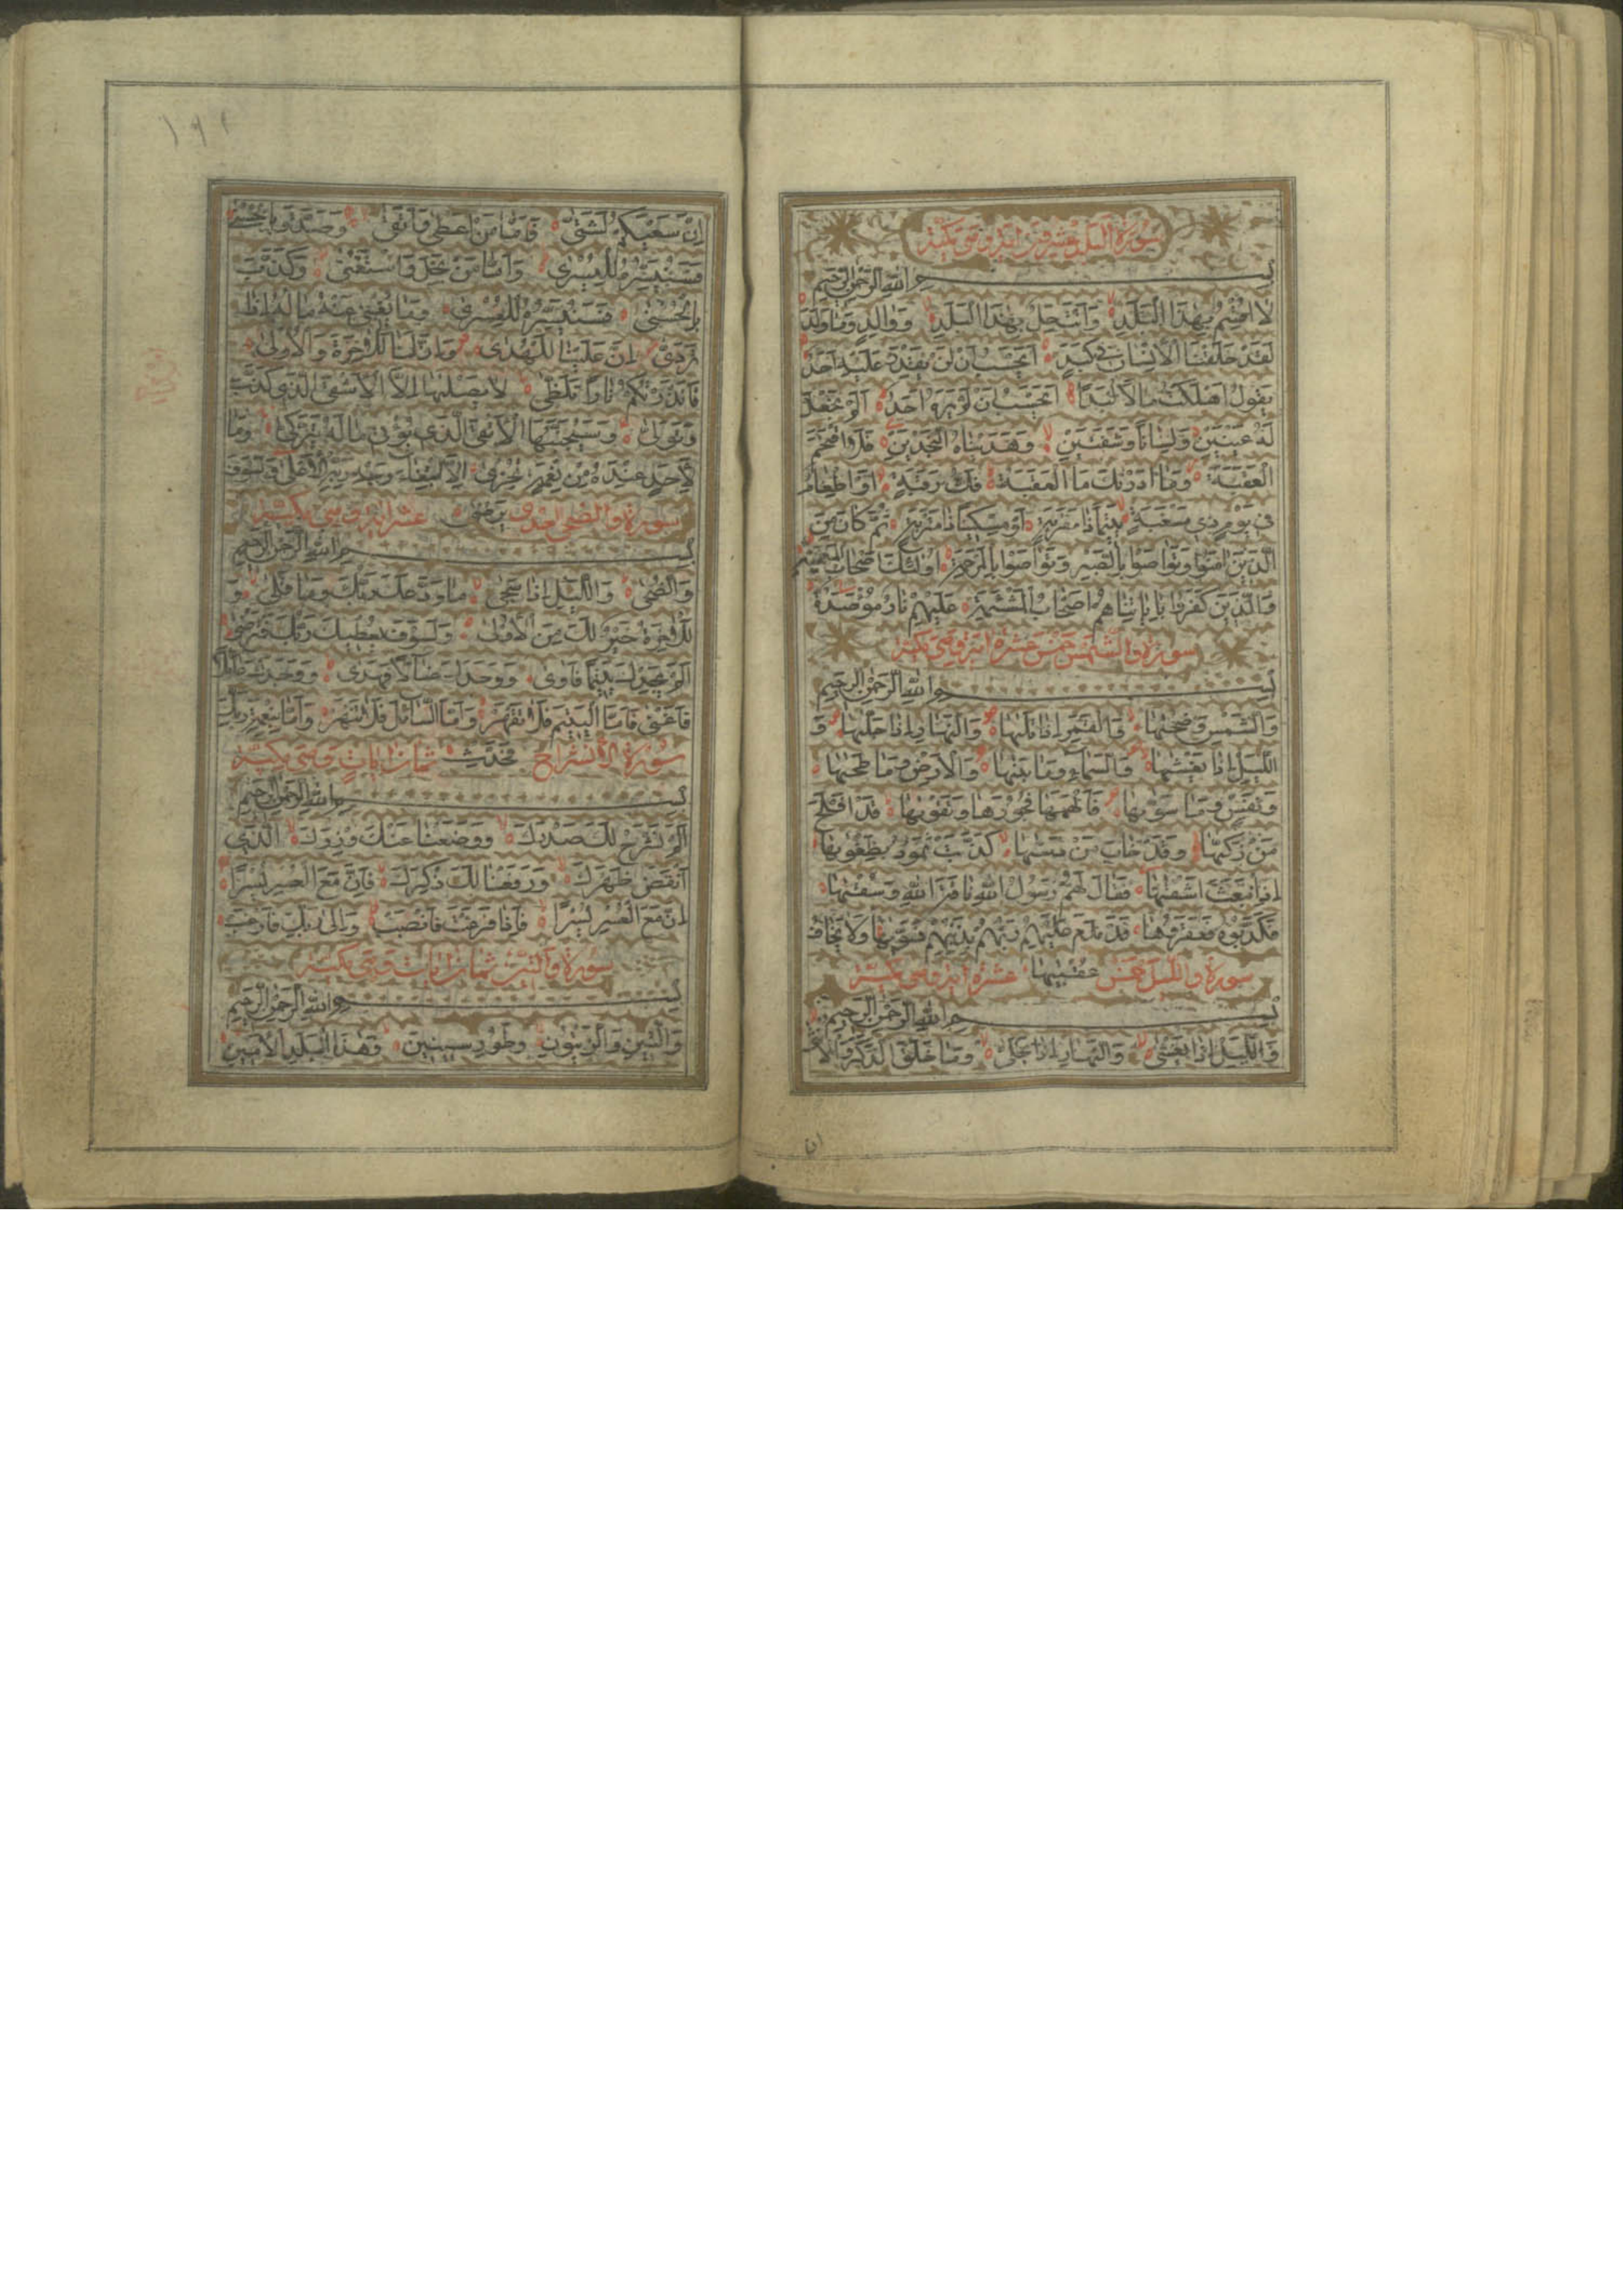 سورة البلد عشرون اية وهى مكية
بسم الله الرحمن الرحيم
لَا اُقْسِمُ بِهٰذَا الْبَلَدِ وَاَنْتَ حِلٌّ بِهٰذَا الْبَلَدِ وَوَالِدٍ وَمَا وَلَدَ
لَقَدْ خَلَقْنَا الْاِنْسَانَ فِي كَبَدٍ اَيَحْسَبُ اَنْ لَنْ يَقْدِرَ عَلَيْهِ اَحَدٌ
يَقُولُ اَهْلَكْتُ مَالًا لُبَدًا اَيَحْسَبُ اَنْ لَمْ يَرَهُ اَحَدٌ اَلَمْ نَجْعَلْ
لَهُ عَيْنَيْنِ وَلِسَانًا وَشَفَتَيْنِ وَهَدَيْنَاهُ النَّجْدَيْنِ فَلَا اقْتَحَمَ
الْعَقَبَةَ وَمَا اَدْرٰىكَ مَا الْعَقَبَةُ فَكُّ رَقَبَةٍ اَوْ اِطْعَامٌ
فِي يَوْمٍ ذِي مَسْغَبَةٍ يَتِيمًا ذَا مَقْرَبَةٍ اَوْ مِسْكِينًا ذَا مَتْرَبَةٍ ثُمَّ كَانَ مِنَ
الَّذِينَ اٰمَنُوا وَتَوَاصَوْا بِالصَّبْرِ وَتَوَاصَوْا بِالْمَرْحَمَةِ اُولٰئِكَ اَصْحَابُ الْمَيْمَنَةِ
وَالَّذِينَ كَفَرُوا بِاٰيَاتِنَا هُمْ اَصْحَابُ الْمَشْئَمَةِ عَلَيْهِمْ نَارٌ مُؤْصَدَةٌ
سورة والشمس خمس عشرة اية وهى مكية
بسم الله الرحمن الرحيم
وَالشَّمْسِ وَضُحٰيهَا وَالْقَمَرِ اِذَا تَلٰيهَا وَالنَّهَارِ اِذَا جَلّٰيهَا وَ
اللَّيْلِ اِذَا يَغْشٰيهَا وَالسَّمَاءِ وَمَا بَنٰيهَا وَالْاَرْضِ وَمَا طَحٰيهَا
وَنَفْسٍ وَمَا سَوّٰيهَا فَاَلْهَمَهَا فُجُورَهَا وَتَقْوٰيهَا قَدْ اَفْلَحَ
مَنْ زَكّٰيهَا وَقَدْ خَابَ مَنْ دَسّٰيهَا كَذَّبَتْ ثَمُودُ بِطَغْوٰيهَا
اِذِ انْبَعَثَ اَشْقٰيهَا فَقَالَ لَهُمْ رَسُولُ اللهِ نَاقَةَ اللهِ وَسُقْيٰهَا
فَكَذَّبُوهُ فَعَقَرُوهَا فَدَمْدَمَ عَلَيْهِمْ رَبُّهُمْ بِذَنْبِهِمْ فَسَوّٰيهَا وَلَا يَخَافُ
سورة والليل عُقْبٰيهَا عشرة اية وهى مكية
بسم الله الرحمن الرحيم
وَاللَّيْلِ اِذَا يَغْشٰى وَالنَّهَارِ اِذَا تَجَلّٰى وَمَا خَلَقَ الذَّكَرَ وَالْاُنْثٰى
ان
١٩٢
اِنَّ سَعْيَكُمْ لَشَتّٰى فَاَمَّا مَنْ اَعْطٰى وَاتَّقٰى وَصَدَّقَ بِالْحُسْنٰى
فَسَنُيَسِّرُهُ لِلْيُسْرٰى وَاَمَّا مَنْ بَخِلَ وَاسْتَغْنٰى وَكَذَّبَ
بِالْحُسْنٰى فَسَنُيَسِّرُهُ لِلْعُسْرٰى وَمَا يُغْنِي عَنْهُ مَالُهُ اِذَا
تَرَدّٰى اِنَّ عَلَيْنَا لَلْهُدٰى وَاِنَّ لَنَا لَلْاٰخِرَةَ وَالْاُولٰى
فَاَنْذَرْتُكُمْ نَارًا تَلَظّٰى لَا يَصْلٰيهَا اِلَّا الْاَشْقَى الَّذِي كَذَّبَ
وَتَوَلّٰى وَسَيُجَنَّبُهَا الْاَتْقَى الَّذِي يُؤْتِي مَالَهُ يَتَزَكّٰى وَمَا
لِاَحَدٍ عِنْدَهُ مِنْ نِعْمَةٍ تُجْزٰى اِلَّا ابْتِغَاءَ وَجْهِ رَبِّهِ الْاَعْلٰى وَلَسَوْفَ
سورة والضحى احدى يَرْضٰى عشر اية وهى مكية
بسم الله الرحمن الرحيم
وَالضُّحٰى وَاللَّيْلِ اِذَا سَجٰى مَا وَدَّعَكَ رَبُّكَ وَمَا قَلٰى وَ
لَلْاٰخِرَةُ خَيْرٌ لَكَ مِنَ الْاُولٰى وَلَسَوْفَ يُعْطِيكَ رَبُّكَ فَتَرْضٰى
اَلَمْ يَجِدْكَ يَتِيمًا فَاٰوٰى وَوَجَدَكَ ضَالًّا فَهَدٰى وَوَجَدَكَ عَائِلًا
فَاَغْنٰى فَاَمَّا الْيَتِيمَ فَلَا تَقْهَرْ وَاَمَّا السَّائِلَ فَلَا تَنْهَرْ وَاَمَّا بِنِعْمَةِ رَبِّكَ
سورة الانشراح فَحَدِّثْ ثمان ايات وهى مكية
بسم الله الرحمن الرحيم
اَلَمْ نَشْرَحْ لَكَ صَدْرَكَ وَوَضَعْنَا عَنْكَ وِزْرَكَ الَّذِي
اَنْقَضَ ظَهْرَكَ وَرَفَعْنَا لَكَ ذِكْرَكَ فَاِنَّ مَعَ الْعُسْرِ يُسْرًا
اِنَّ مَعَ الْعُسْرِ يُسْرًا فَاِذَا فَرَغْتَ فَانْصَبْ وَاِلٰى رَبِّكَ فَارْغَبْ
سورة والتين ثمان ايات وهى مكية
بسم الله الرحمن الرحيم
وَالتِّينِ وَالزَّيْتُونِ وَطُورِ سِينِينَ وَهٰذَا الْبَلَدِ الْاَمِينِ